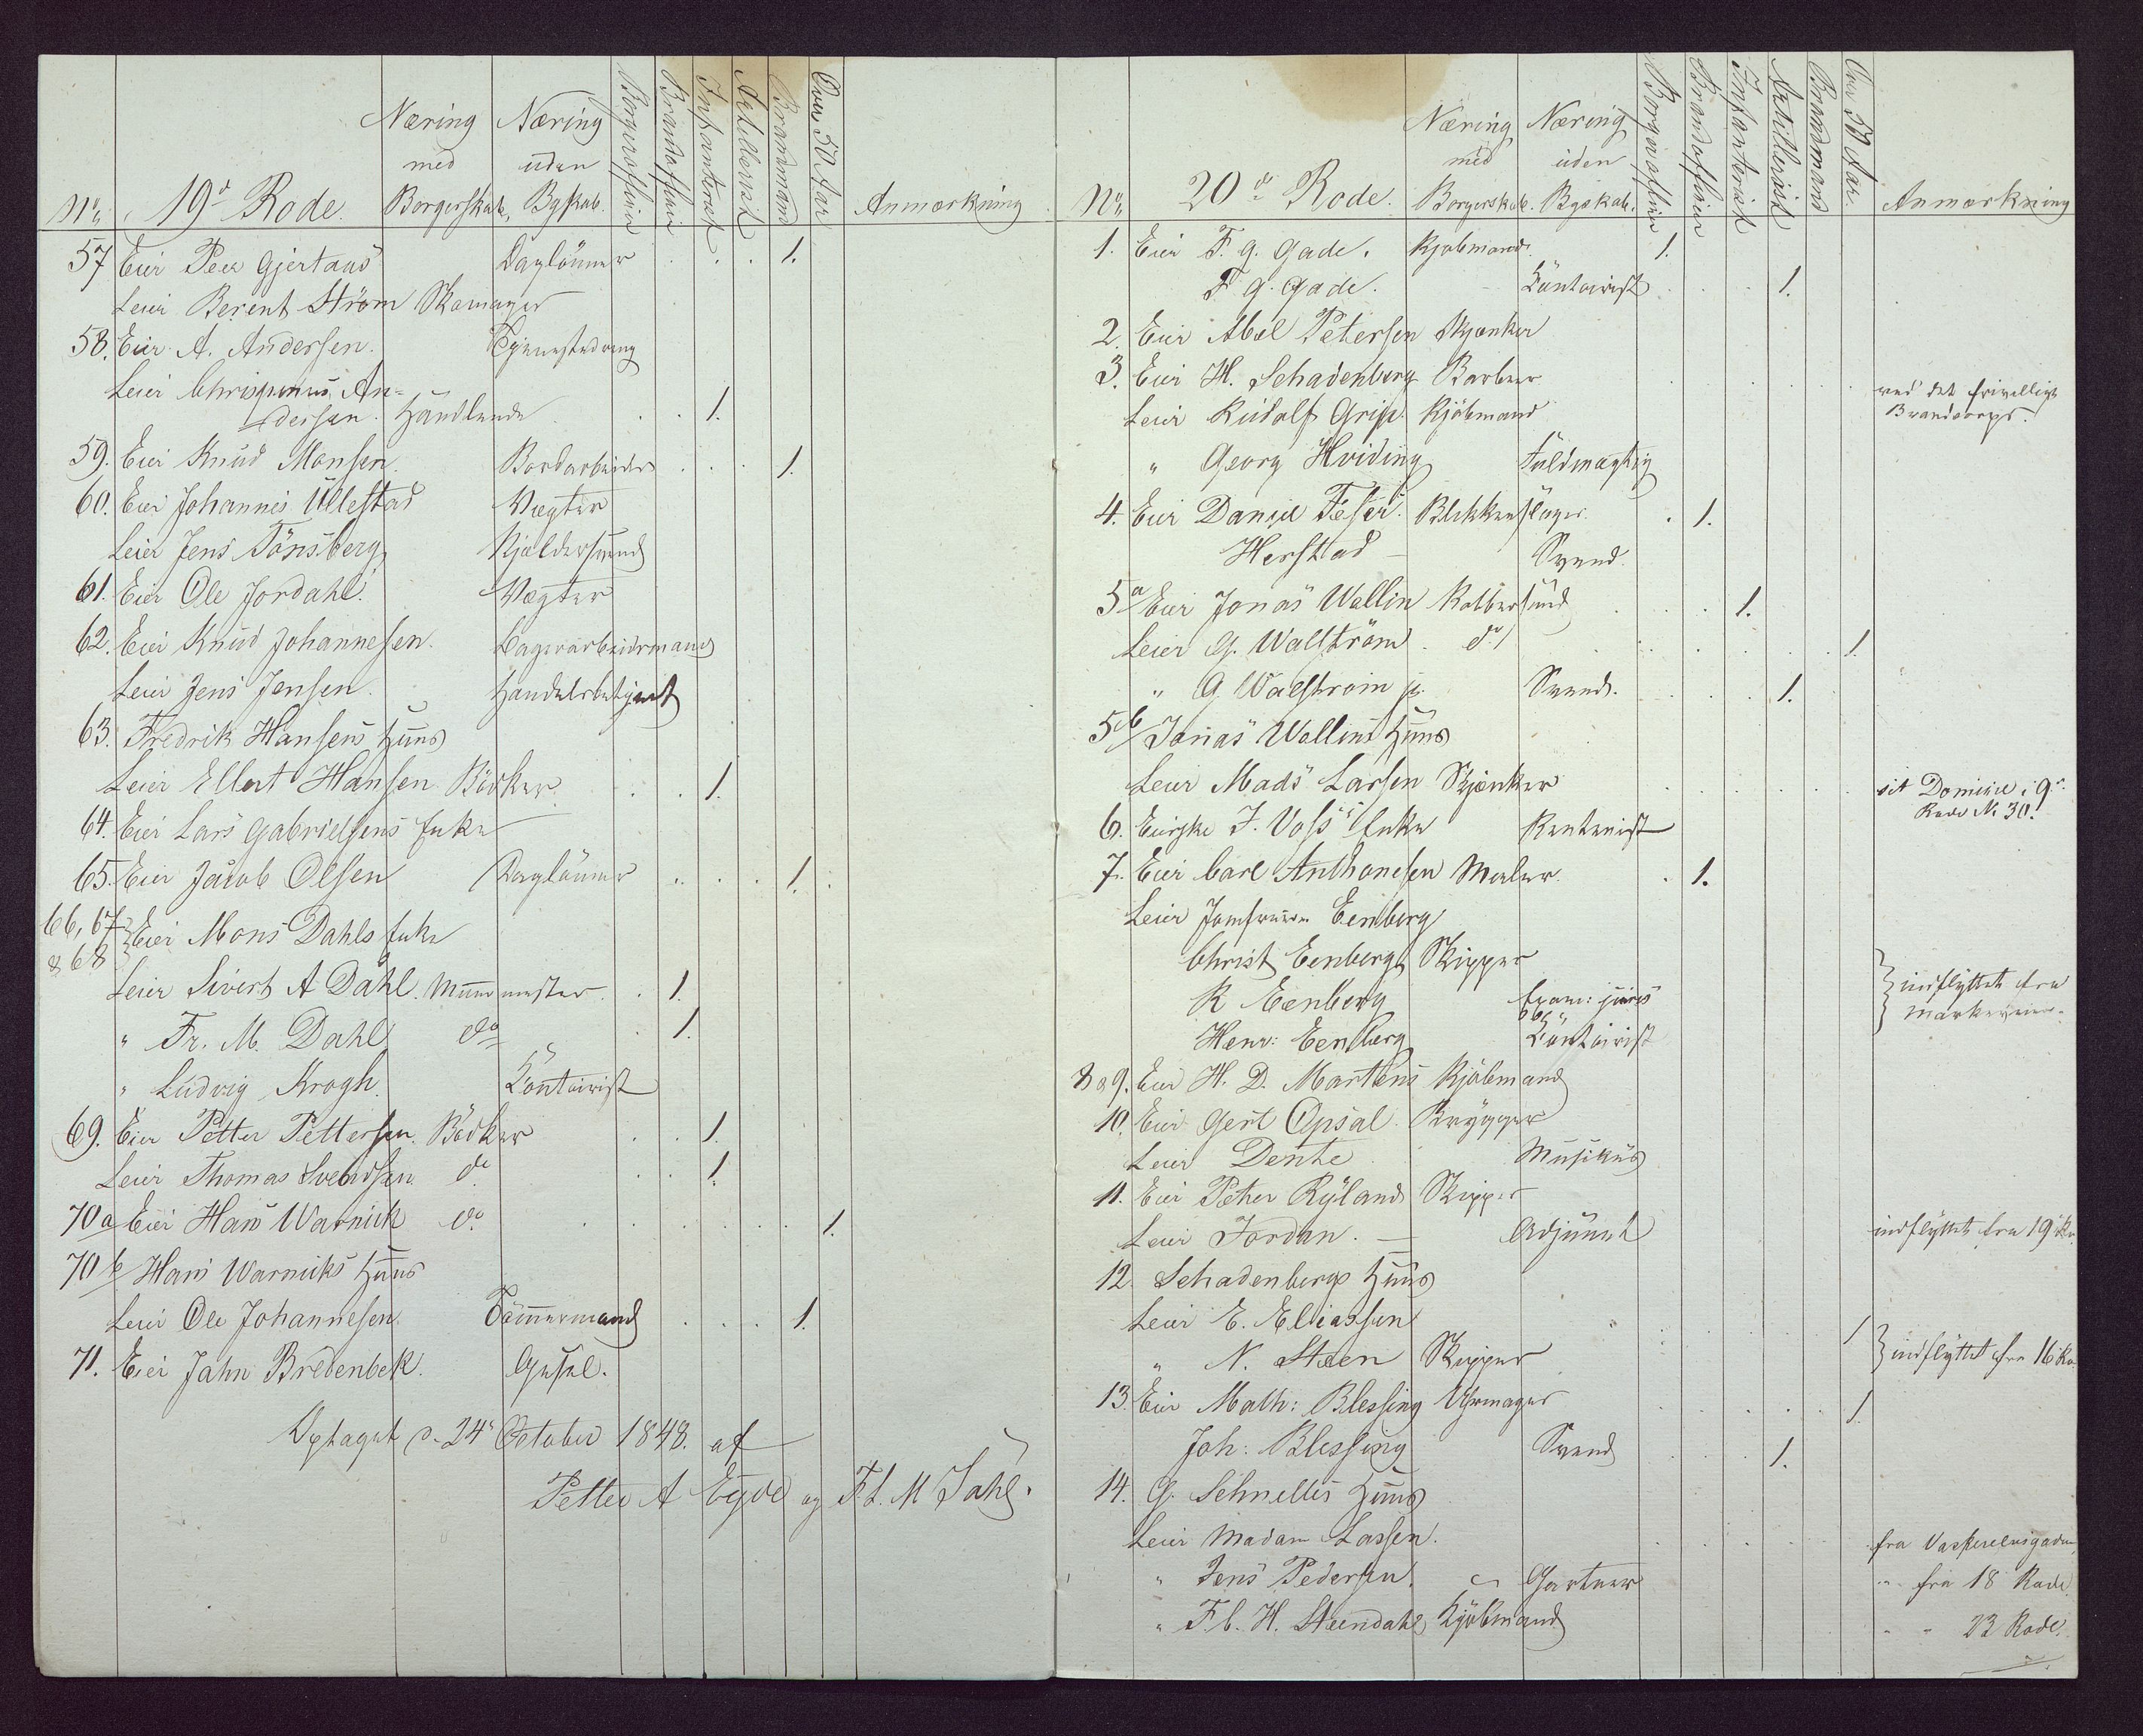 No. 19de Rode. Næring med Borgerskab. Næring uden Bgskab. Borgerofficier Brandofficier Infanterist Artillerist Brandmand Over 50 Aar Anmærkning
57 Eier Peer Gjertaus Daglönner 1.
Leier Berent Ström Skomager
58. Eier A. Andersen.
Leier Chrispinus An-
dersen. Handlende 1.
59. Eier Knud Monsen. Bordarbeider 1.
60. Eier Johannes Ullestad Vægter
Leier Jens Tönsberg Kjeldersvend
61. Eier Ole Jordahl. Vægter
62. Eier Knud Johannesen. Lagerarbeidsmand
Leier Jens Jensen. Handelsbetjent
63. Fredrik Hansens Huus
Leier Ellert Hansen Bödker 1.
64. Eier Lars Gabrielsens Enke
65. Eier Jacob Olsen Daglönner 1.
66, 67
& 68 Eier Mons Dahls Enke
Leier Sivert A Dahl. Muurmester 1.
" Fr. M. Dahl do 1.
" Ludvig Krogh. Contoirist
69. Eier Petter Pettersen. Bödker 1.
Leier Thomas Svendsen do 1.
70a Eier Hans Warnick do 1.
70b Hans Warnicks Huus
Leier Ole Johannesen. Tömmermand 1.
71. Eier Jahn Bredenbek. Gesel.
Optaget d. 24de October 1848. af
Petter A Eyde og F. L. M Dahl.
No. 20de Rode. Næring med Borgerskab. Næring uden Bgskab. Borgerofficier Brandofficier Infanterist Artillerist Brandmand Over 50 Aar. Anmærkning
1. Eier F. G. Gade. Kjøbmand. 1.
F. G. Gade. Contoirist 1.
2. Eier Abel Petersen Skjænker
3. Eier H. Schadenberg Barbeer ved det frivillige
Brandcorps.
Leier Rudolf Grip. Kjöbmand
" Georg Hviding Fuldmægtig
4. Eier Daniel Feser. Blikkenslager. 1.
Herstad Svend
5a Eier Jonas Wallin Kobbersmed 1.
Leier G. Wallström do 1.
" G. Walström jr. Svend. 1.
5b Jonas Wallins Huus
Leier Mads Larsen Skjænker sit Domicil i 9de
Rode No 30.
6. Eierske J. Voss's Enke Rentenist
7. Eier Carl Anthonesen Maler 1.
Leier Jomfruerne Eenberg
Christ Eenberg Skipper
R Eenberg Exam: juris indflyttet fra
Markeveien.
Henr: Eenberg Contoirist
8 & 9. Eier H. D. Martens Kjöbmand
10. Eier Gert Opsal Brygger
Leier Dente Musikus
11. Eier Peter Ryland Skipper
Leier Jordan. Adjunct indflyttet fra 19 Ro.
12 Schadenbergs Huus
Leier E. Eliassen 1
" N. Steen Skipper indflyttet fra 16 Ro.
13. Eier Math: Blessing Uhrmager 1.
Joh: Blessing Svend 1.
14. G. Schnelles Huus
Leier Madam Lassen. fra Vaskerelvsgaden
" Jens Pedersen. Gartner " fra 18 Rode
" F. C. H. Steendahl Kjöbmand " " 23 Rode.